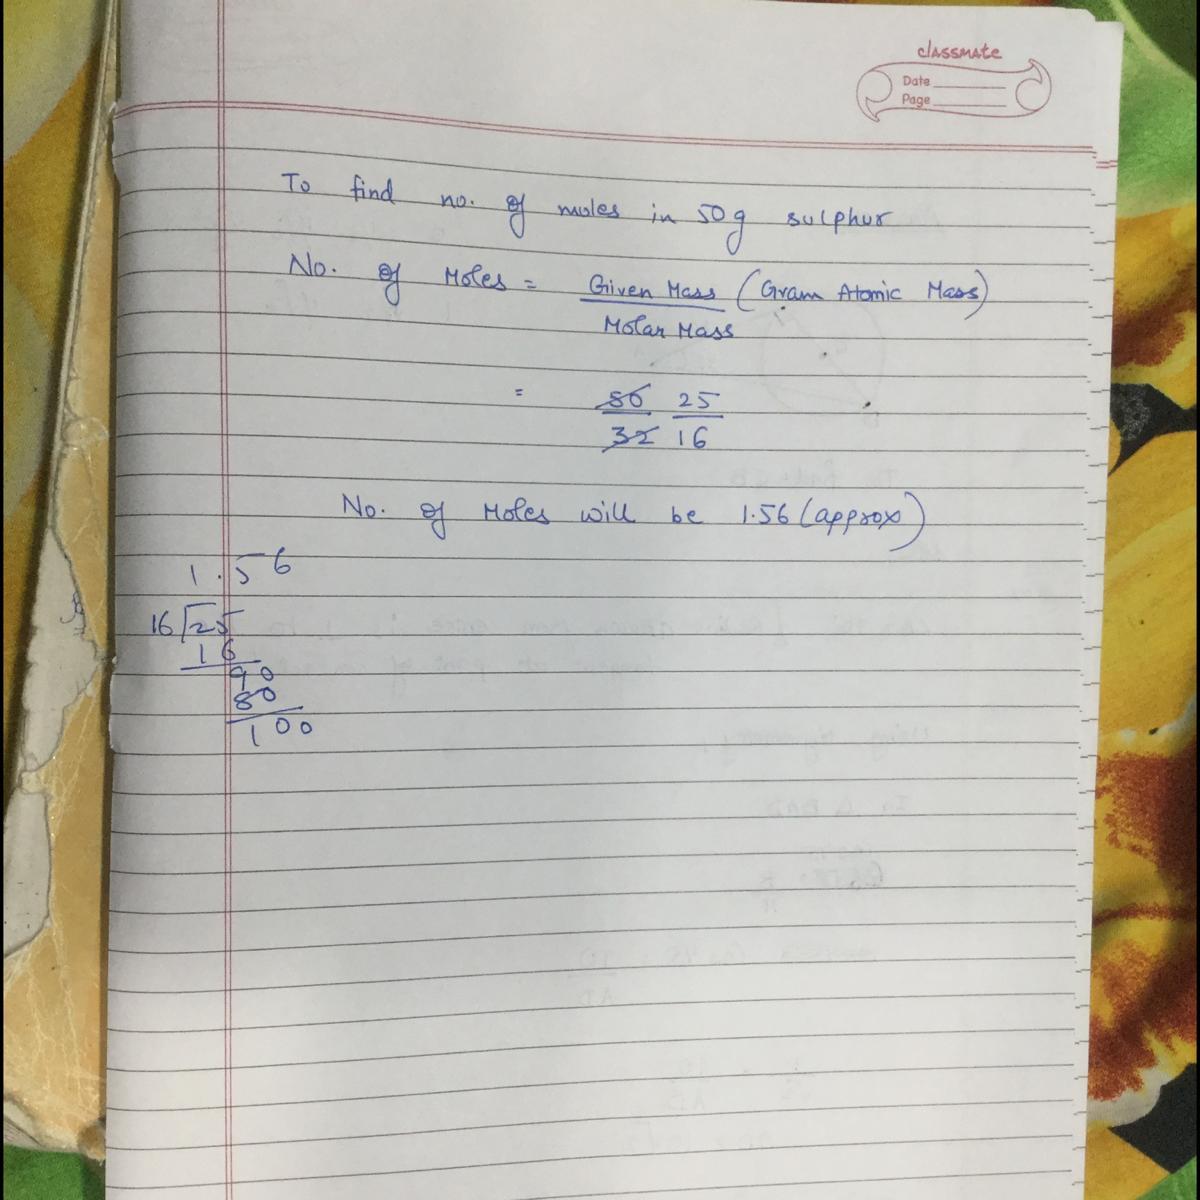 classmate
Date
Page
To find no. of moles in 50g sulphur
No. of Moles = Given Mass (Gram Atomic Mass)
Molar Mass
= 50 25
32 16
No. of Moles will be 1.56 (approx)
1.56
16 25
16
90
80
100